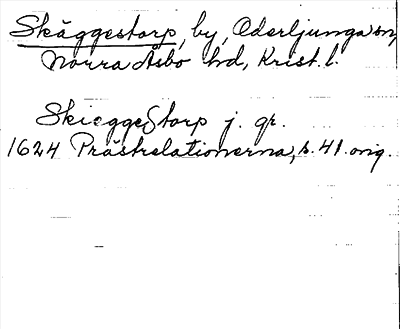 Skäggestorp, by, Oderljunga sn,
Norra Åsbo hd, Krist. l.
Skieggestorp j. qr.
1624 Prästrelationerna, s. 41. orig.